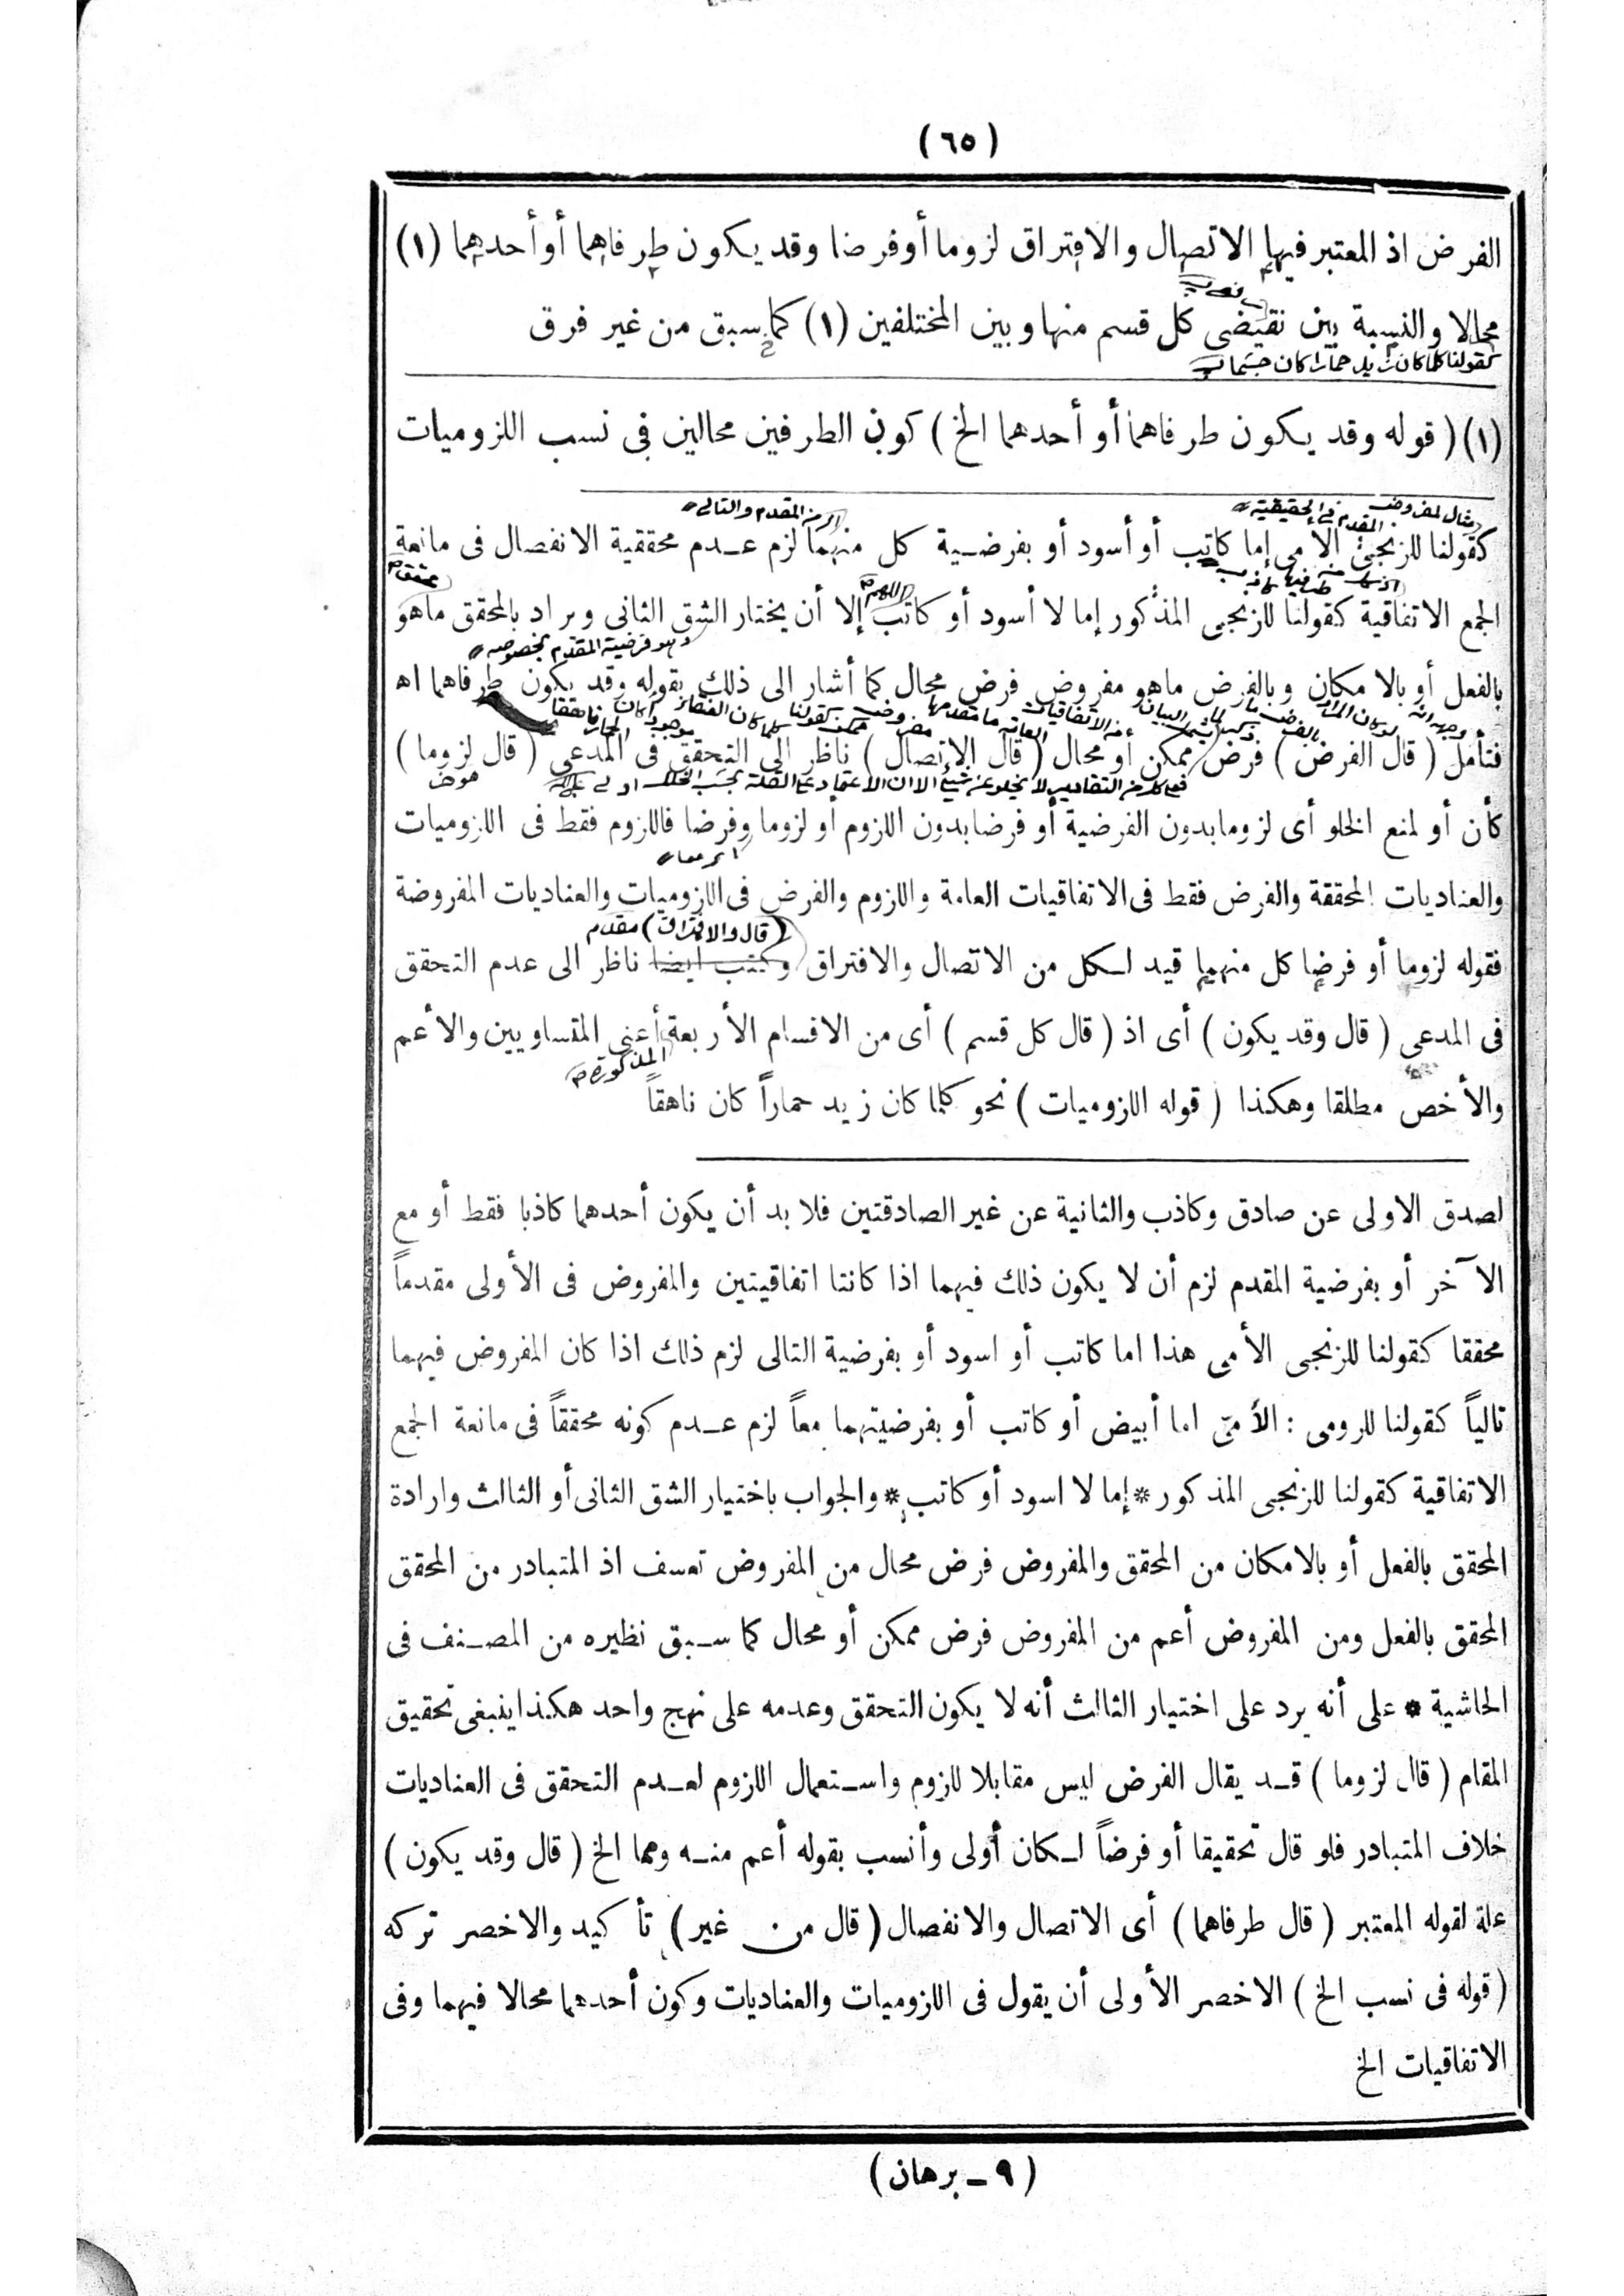 (٦٥)
الفرض اذ المعتبر فيها الاتصال والافتراق لزوما أو فرضا وقد يكون طرفاهما أو أحدهما (١)
محالا والنسبة بين نقيضي كل قسم منها وبين المختلفين (١) كما سبق من غير فرق
كقولنا كلما كان زيد حمارا كان جسما
(١) (قوله وقد يكون طرفاهما أو أحدهما الخ) كون الطرفين محالين في نسب اللزوميات
مثال لمفروض المقدم في الحقيقية
اي من المقدم والتالي
كقولنا للزنجي الامي إما كاتب أو أسود أو بفرضية كل منهما لزم عدم محققية الانفصال في مانعة
الجمع الاتفاقية كقولنا للزنجي المذكور إما لا أسود أو كاتب اللهم إلا أن يختار الشق الثاني ويراد بالمحقق ماهو
وهو فرضية المقدم بخصوصه
بالفعل أو بالامكان وبالفرض ماهو مفروض فرض محال كما أشار الى ذلك بقوله وقد يكون طرفاهما اه
فتأمل (قال الفرض) فرض ممكن أو محال (قال الاتصال) ناظر الى التحقق في المدعى (قال لزوما)
كأن أو لمنع الخلو أى لزوما بدون الفرضية أو فرضا بدون اللزوم أو لزوما وفرضا فاللزوم فقط في اللزوميات
والعناديات المحققة والفرض فقط في الاتفاقيات العامة واللزوم والفرض في اللزوميات والعناديات المفروضة
(قال والافتراق) مقدم
فقوله لزوما أو فرضا كل منهما قيد لكل من الاتصال والافتراق وكتب ايضا ناظر الى عدم التحقق
في المدعى (قال وقد يكون) أى اذ (قال كل قسم) أى من الاقسام الأربعة أعنى المتساويين والأعم
المذكورة
والأخص مطلقا وهكذا (قوله اللزوميات) نحو كلما كان زيد حماراً كان ناهقاً
لصدق الاولى عن صادق وكاذب والثانية عن غير الصادقتين فلا بد أن يكون أحدهما كاذبا فقط أو مع
الآخر أو بفرضية المقدم لزم أن لا يكون ذلك فيهما اذا كانتا اتفاقيتين والمفروض في الأولى مقدماً
محققا كقولنا للزنجي الأمي هذا اما كاتب أو اسود أو بفرضية التالى لزم ذلك اذا كان المفروض فيهما
تالياً كقولنا للرومى : الأمىّ اما أبيض أو كاتب أو بفرضيتهما معاً لزم عدم كونه محققاً في مانعة الجمع
الاتفاقية كقولنا للزنجي المذكور * إما لا اسود أو كاتب * والجواب باختيار الشق الثانى أو الثالث وارادة
المحقق بالفعل أو بالامكان من المحقق والمفروض فرض محال من المفروض تعسف اذ المتبادر من المحقق
المحقق بالفعل ومن المفروض أعم من المفروض فرض ممكن أو محال كما سبق نظيره من المصنف في
الحاشية * على أنه يرد على اختيار الثالث أنه لا يكون التحقق وعدمه على نهج واحد هكذا ينبغى تحقيق
المقام (قال لزوما) قد يقال الفرض ليس مقابلا للزوم واستعمال اللزوم لعدم التحقق في العناديات
خلاف المتبادر فلو قال تحقيقا أو فرضاً لكان أولى وأنسب بقوله أعم منه ومما الخ (قال وقد يكون)
علة لقوله المعتبر (قال طرفاهما) أى الاتصال والانفصال (قال من غير) تأكيد والاخصر تركه
(قوله في نسب الخ) الاخصر الأولى أن يقول في اللزوميات والعناديات وكون أحدهما محالا فيهما وفى
الاتفاقيات الخ
(٩ - برهان)